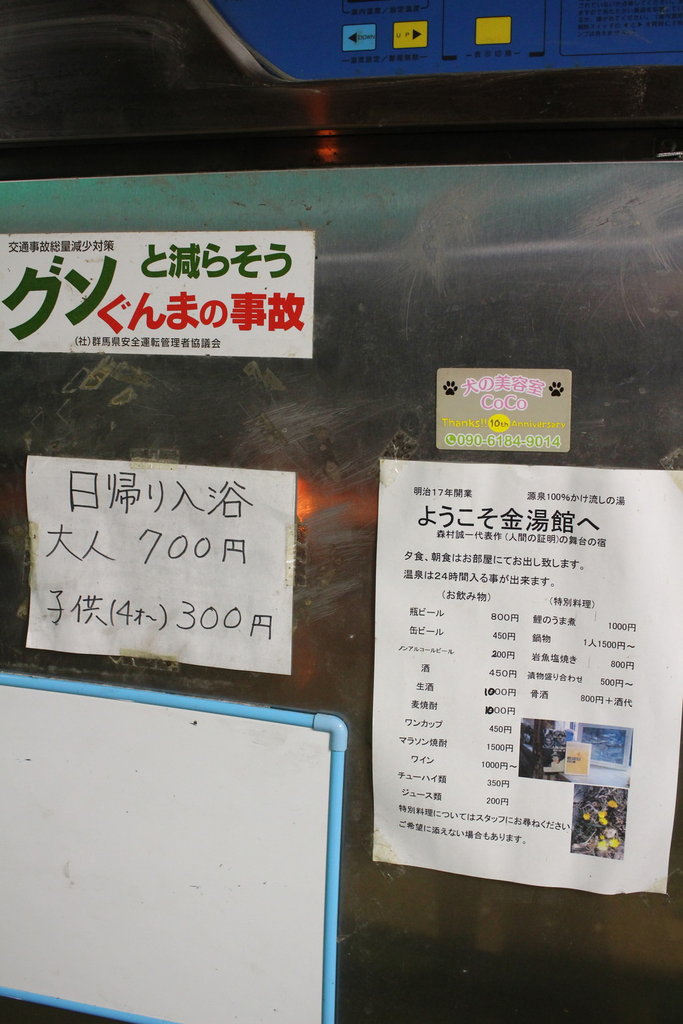 庫内温度／設定温度
DOWN
UP
温度設定／警報解除
表示切替
交通事故総量減少対策
グンと減らそう
ぐんまの事故
(社)群馬県安全運転管理者協議会
犬の美容室
CoCo
Thanks!! 10th Anniversary
090-6184-9014
日帰り入浴
大人 700円
子供(4才〜) 300円
明治17年開業 源泉100%かけ流しの湯
ようこそ金湯館へ
森村誠一代表作(人間の証明)の舞台の宿
夕食、朝食はお部屋にてお出し致します。
温泉は24時間入る事が出来ます。
(お飲み物)
瓶ビール 800円
缶ビール 450円
ノンアルコールビール 200円
酒 450円
生酒 1000円
麦焼酎 1000円
ワンカップ 450円
マラソン焼酎 1500円
ワイン 1000円〜
チューハイ類 350円
ジュース類 200円
(特別料理)
鯉のうま煮 1000円
鍋物 1人1500円〜
岩魚塩焼き 800円
漬物盛り合わせ 500円〜
骨酒 800円+酒代
特別料理についてはスタッフにお尋ねください
ご希望に添えない場合もあります。